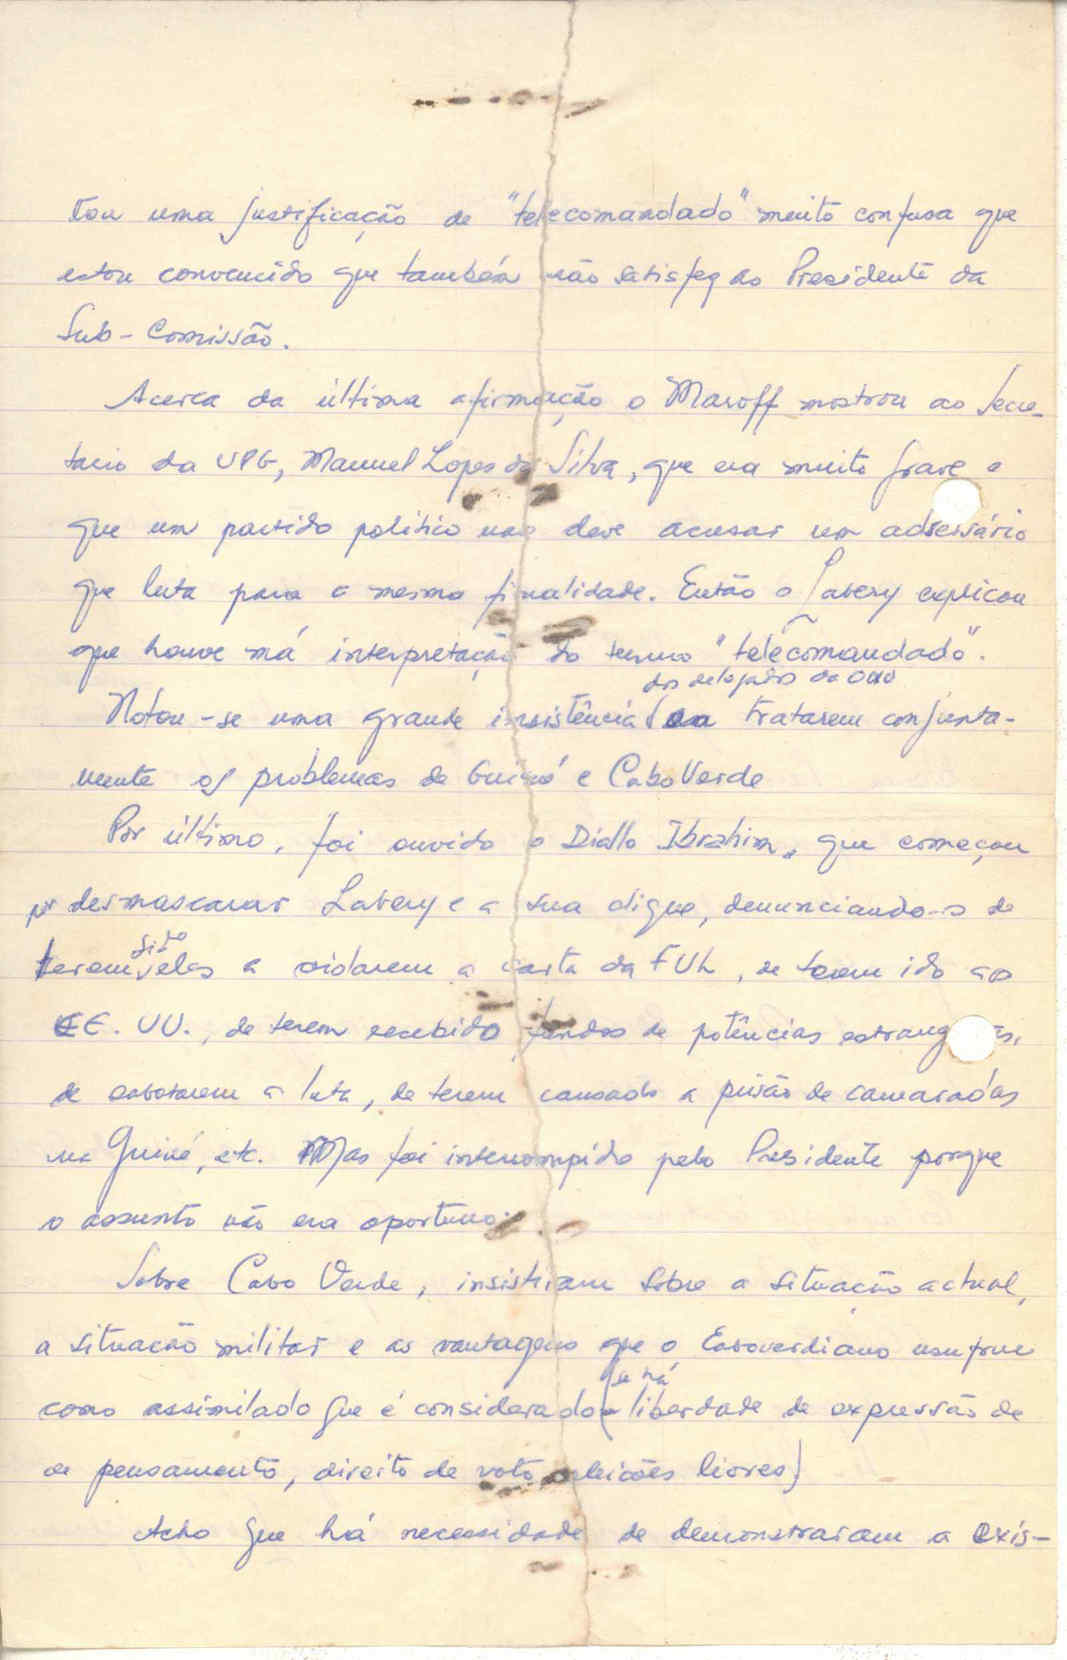 tou uma justificação de "telecomandado" muito confusa que
estou convencido que também não satisfez ao Presidente da
Sub-Comissão.
Acerca da última afirmação o Maroff mostrou ao Secre-
tario da UPG, Manuel Lopes da Silva, que era muito grave e
que um partido politico não deve acusar um adversário
que luta para a mesma finalidade. Então o Labery explicou
que houve má interpretação do termo "telecomandado".
dos delegados da ONU
Notou-se uma grande insistência em tratarem conjunta-
mente os problemas de Guiné e Cabo Verde
Por último, foi ouvido o Diallo Ibrahim, que começou
por desmascarar Labery e a sua clique, denunciando-os de
sido
terem eles a violarem a carta da FUL, de terem ido aos
EE. UU., de terem recebido fundos de potências estrang as,
de sabotarem a luta, de terem causado a prisão de camaradas
na Guiné, etc. Mas foi interrompido pelo Presidente porque
o assunto não era oportuno.
Sobre Cabo Verde, insistiram sobre a situação actual,
a situação militar e as vantagens que o Caboverdiano usufrue
se há
como assimilado que é considerado (liberdade de expressão de
de pensamento, direito de voto, eleições livres)
Acho que há necessidade de demonstrarem a exis-